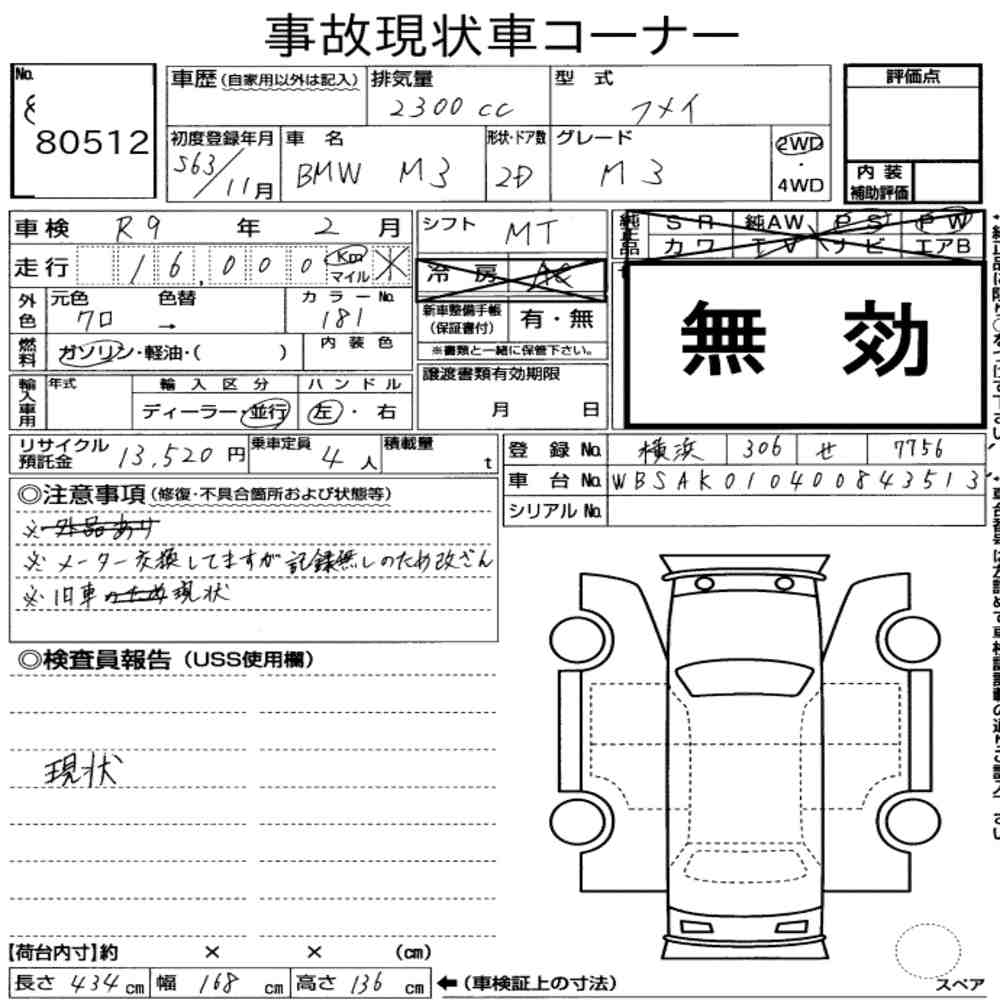 事故現状車コーナー
No. 80512
車歴(自家用以外は記入) 排気量 2300cc 型式 フメイ 評価点
初度登録年月 S63/11月 車名 BMW M3 形状・ドア数 2D グレード M3 2WD・4WD 内装補助評価
車検 R9年 2月 シフト MT 純正品 SR 純AW PS PW
走行 16,000 Km マイル 冷房 AC カワ TV ナビ エアB
外色 元色 クロ 色替 → カラーNo. 181 新車整備手帳(保証書付) 有・無
燃料 ガソリン・軽油・( ) 内装色 ※書類と一緒に保管下さい。
無効
輸入車用 年式 輸入区分 ディーラー・並行 ハンドル 左・右 譲渡書類有効期限 月 日
リサイクル預託金 13,520円 乗車定員 4人 積載量 t 登録No. 横浜 306 せ 7756
車台No. WBSAK010400843513
シリアルNo.
◎注意事項(修復・不具合箇所および状態等)
※外品あり
※メーター交換してますが記録無しのため改ざん
※旧車のため現状
◎検査員報告(USS使用欄)
現状
【荷台内寸】約 × × (cm)
長さ 434cm 幅 168cm 高さ 136cm ←(車検証上の寸法)
スペア